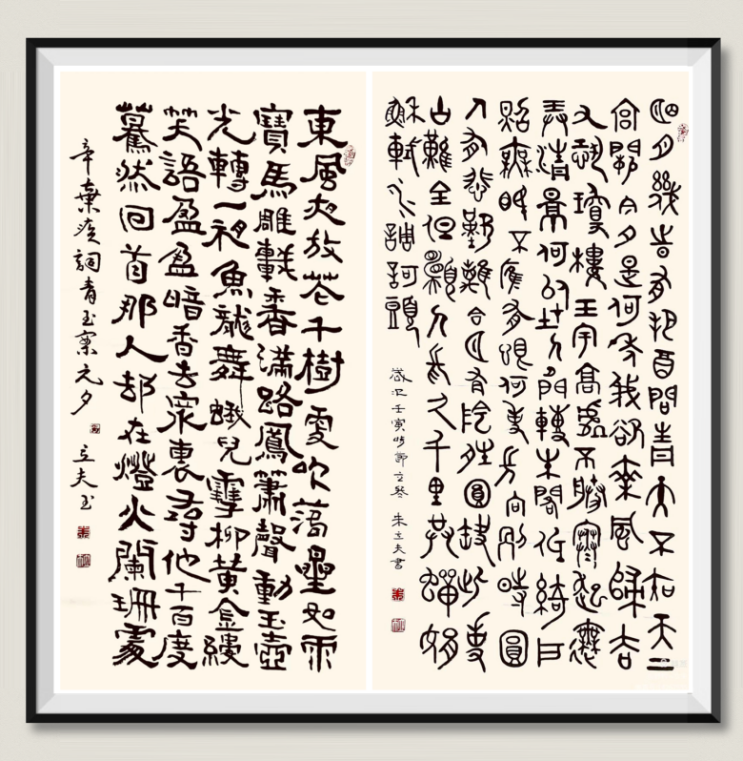 明月幾時有把酒問青天不知天上
宮闕今夕是何年我欲乘風歸去
又恐瓊樓玉宇高處不勝寒起舞
弄清景何似在人間轉朱閣低綺戶
照無眠不應有恨何事長向別時圓
人有悲歡離合月有陰晴圓缺此事
古難全但願人長久千里共嬋娟
蘇軾水調歌頭
歲次壬寅時節立冬 朱立夫書
東風夜放花千樹更吹落星如雨
寶馬雕車香滿路鳳簫聲動玉壺
光轉一夜魚龍舞蛾兒雪柳黃金縷
笑語盈盈暗香去眾裏尋他千百度
驀然回首那人卻在燈火闌珊處
辛棄疾詞青玉案元夕 立夫書